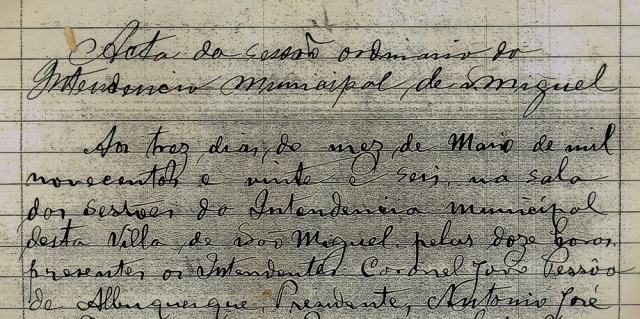 Acta da sessão ordinaria da
Intendencia Municipal, de S. Miguel
Aos trez dias, do mez de Maio de mil
novecentos e vinte e seis, na sala
das sessões da Intendencia Municipal
desta Villa, de São Miguel, pelas doze horas
presentes os Intendentes Coronel João Pessôa
de Albuquerque, Presidente, Antonio José